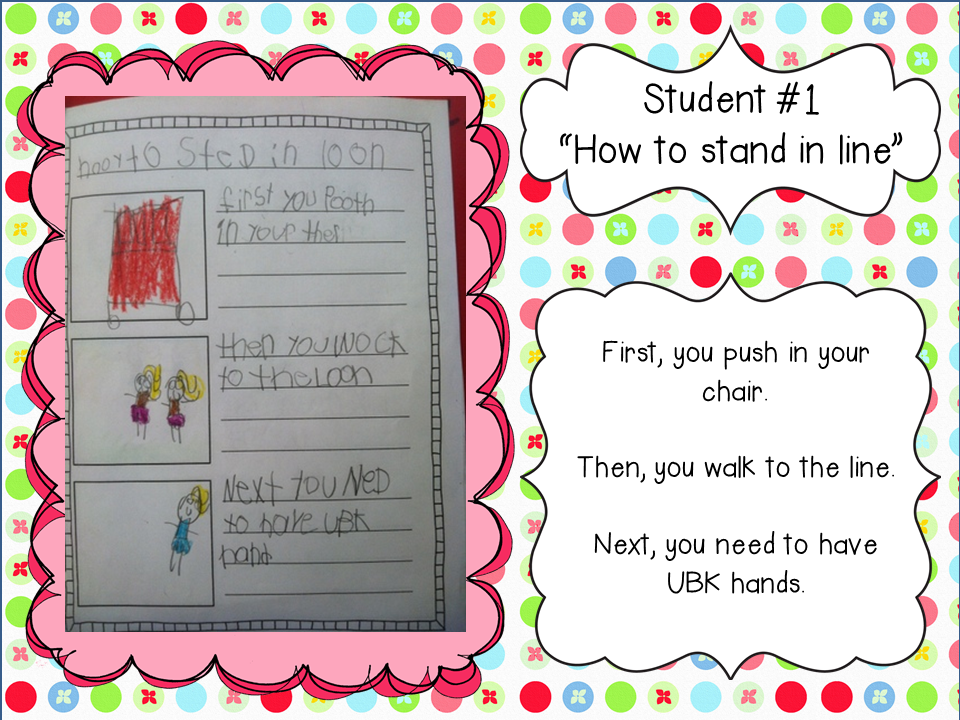 hoow to SteD in loon
first you Pooth
in your ther
then you wock
to the Loon
Next you NeD
to have UBK
hand
Student #1
“How to stand in line”
First, you push in your
chair.
Then, you walk to the line.
Next, you need to have
UBK hands.